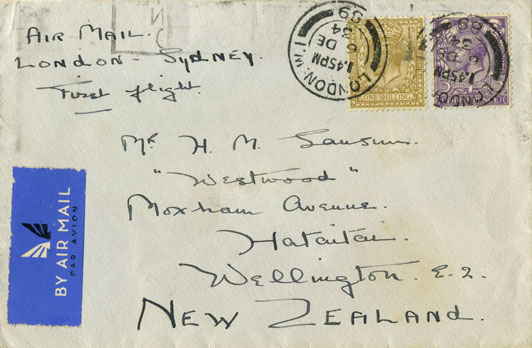 AIR MAIL.
LONDON - SYDNEY.
First flight
LONDON. W.1
1.45PM
6 DE
34
89
ONE SHILLING
LONDON
1.45PM
DE
34
89
Mr H. M. Sansum.
"Westwood"
Moxham Avenue.
Hataitai.
Wellington. E.2.
NEW ZEALAND.
BY AIR MAIL
PAR AVION